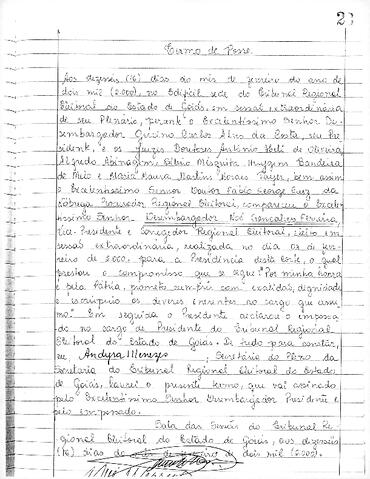 23
Termo de Posse
Aos dezesseis (16) dias do mês de fevereiro do ano de
dois mil (2.000), no Edifício sede do Tribunal Regional
Eleitoral do Estado de Goiás, em sessão extraordinária
de seu Plenário, perante o Excelentíssimo Senhor De-
sembargador Carlos da Costa, seu Pre-
sidente, e os Juízes Doutores Antônio de Oliveira
Alfredo Abinagem, Mesquita, Bandeira
de Melo e Maria Maura Martins Moraes Tayer, bem assim
o Excelentíssimo Senhor Doutor Fábio George Cruz da
Nóbrega, Procurador Regional Eleitoral, compareceu o Excelen-
tíssimo Senhor Desembargador Noé Gonçalves Ferreira,
Vice-Presidente e Corregedor Regional Eleitoral, eleito em
sessão extraordinária, realizada no dia de feve-
reiro de 2.000, para a Presidência desta Corte, o qual
prestou o compromisso que se segue: "Por minha honra
e pela Pátria, prometo cumprir com exatidão, dignidade
e escrúpulo os deveres inerentes ao cargo que assu-
mo." Em seguida o Presidente declarou o empossa-
do no cargo de Presidente do Tribunal Regional
Eleitoral do Estado de Goiás. De tudo para constar,
eu, Andyra Menezes, Secretária do Pleno da
Secretaria do Tribunal Regional Eleitoral do Estado
de Goiás, lavrei o presente termo, que vai assinado
pelo Excelentíssimo Senhor Desembargador Presidente e
pelo empossado.
Sala das Sessões do Tribunal Re-
gional Eleitoral do Estado de Goiás, aos dezesseis
(16) dias do mês de fevereiro de dois mil (2.000).